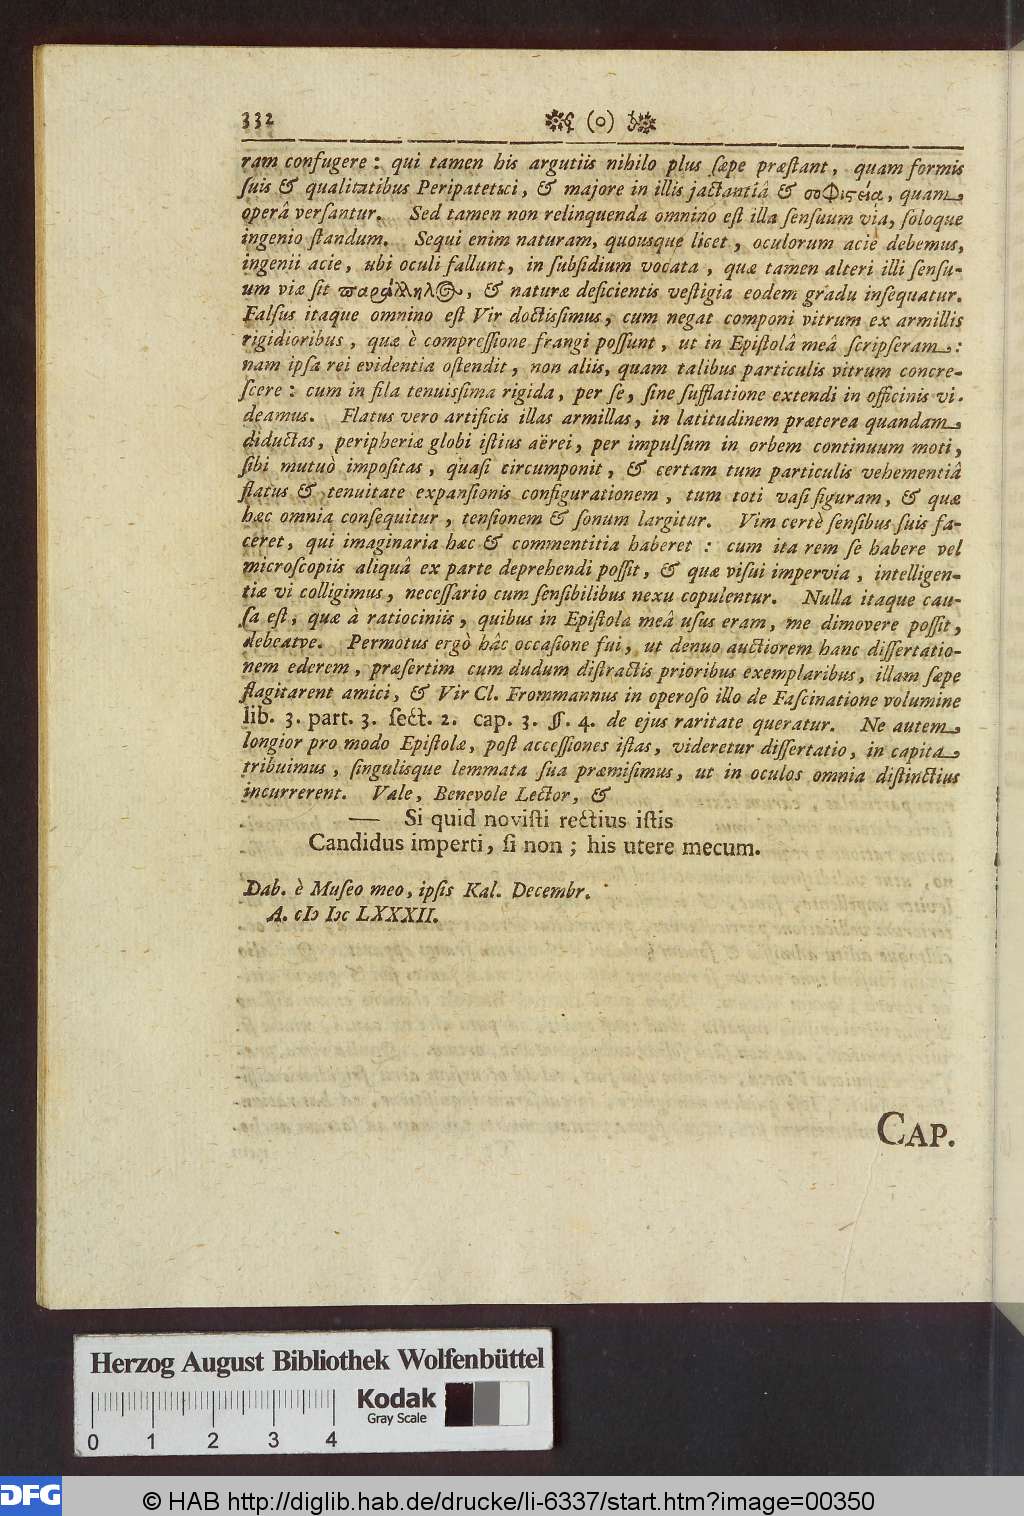 332 (o)
ram confugere : qui tamen his argutiis nihilo plus ſæpe præſtant, quam formis
ſuis & qualitatibus Peripatetici, & majore in illis jactantiâ & σοφιϛεία, quam
operâ verſantur. Sed tamen non relinquenda omnino eſt illa ſenſuum via, ſoloque
ingenio ſtandum. Sequi enim naturam, quousque licet, oculorum acie debemus,
ingenii acie, ubi oculi fallunt, in ſubſidium vocata, quæ tamen alteri illi ſenſu-
um viæ ſit ϖαράλληλ, & naturæ deficientis veſtigia eodem gradu inſequatur.
Falſus itaque omnino eſt Vir doctisſimus, cum negat componi vitrum ex armillis
rigidioribus, quæ è compreſſione frangi poſſunt, ut in Epiſtolâ meâ ſcripſeram :
nam ipſa rei evidentia oſtendit, non aliis, quam talibus particulis vitrum concre-
ſcere : cum in fila tenuisſima rigida, per ſe, ſine ſufflatione extendi in officinis vi-
deamus. Flatus vero artificis illas armillas, in latitudinem præterea quandam
diductas, peripheriæ globi iſtius aërei, per impulſum in orbem continuum moti,
ſibi mutuò impoſitas, quaſi circumponit, & certam tum particulis vehementiâ
flatus & tenuitate expanſionis configurationem, tum toti vaſi figuram, & quæ
hæc omnia conſequitur, tenſionem & ſonum largitur. Vim certè ſenſibus ſuis fa-
ceret, qui imaginaria hæc & commentitia haberet : cum ita rem ſe habere vel
microſcopiis aliquâ ex parte deprehendi poſſit, & quæ viſui impervia, intelligen-
tiæ vi colligimus, neceſſario cum ſenſibilibus nexu copulentur. Nulla itaque cau-
ſa eſt, quæ à ratiociniis, quibus in Epiſtola meâ uſus eram, me dimovere poſſit,
debeatve. Permotus ergò hâc occaſione fui, ut denuo auctiorem hanc diſſertatio-
nem ederem, præſertim cum dudum diſtractis prioribus exemplaribus, illam ſæpe
flagitarent amici, & Vir Cl. Frommannus in operoſo illo de Faſcinatione volumine
lib. 3. part. 3. ſect. 2. cap. 3. §. 4. de ejus raritate queratur. Ne autem
longior pro modo Epiſtolæ, poſt acceſſiones iſtas, videretur diſſertatio, in capita
tribuimus, ſingulisque lemmata ſua præmiſimus, ut in oculos omnia diſtinctius
incurrerent. Vale, Benevole Lector, &
— Si quid noviſti rectius iſtis
Candidus imperti, ſi non ; his utere mecum.
Dab. è Muſeo meo, ipſis Kal. Decembr.
A. cIɔ Iɔc LXXXII.
CAP.
Herzog August Bibliothek Wolfenbüttel
Kodak
Gray Scale
0 1 2 3 4
DFG
© HAB http://diglib.hab.de/drucke/li-6337/start.htm?image=00350